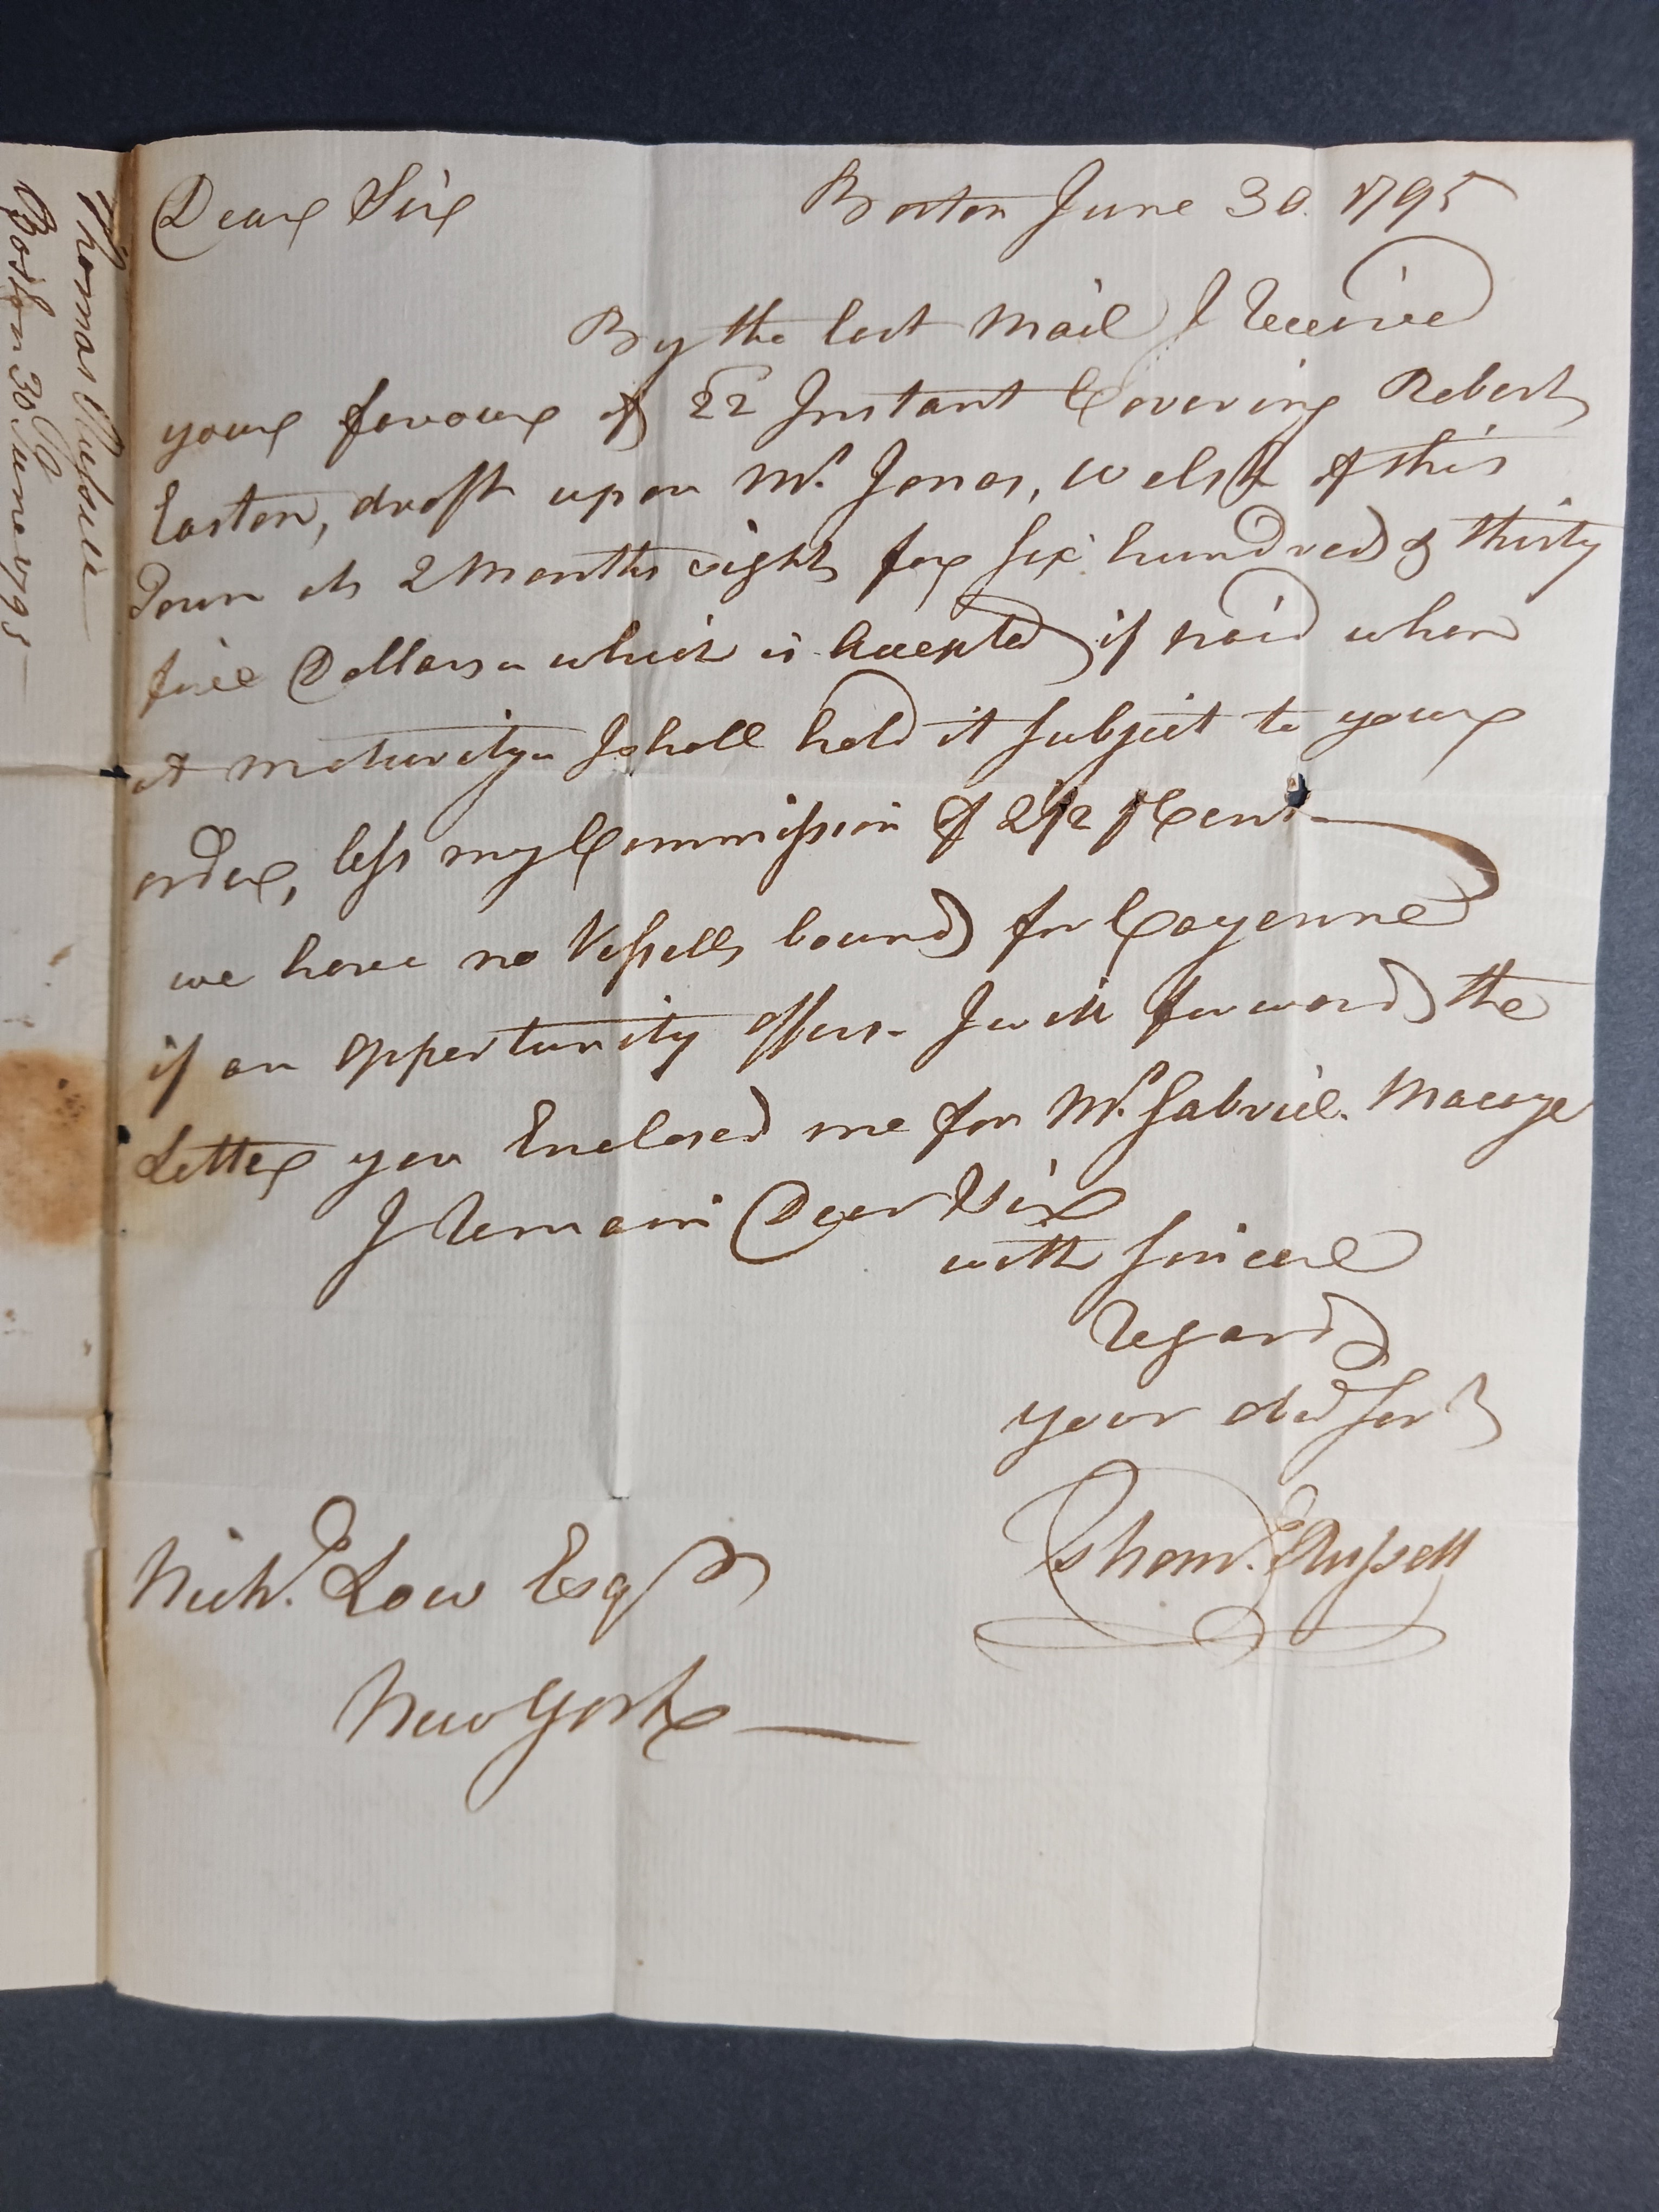 Dear Sir Boston June 30. 1795
By the last Mail I received
your favour of 22 Instant Covering Robert
Easton, draft upon Mr. Jonas, Welsh of this
Town at 2 Months sight for six hundred & thirty
five Dollars - which is Accepted if paid when
at maturity - I shall hold it subject to your
order, less my Commission of 2 1/2 P Cent -
we have no Vessells bound for Cayenne
if an opportunity offers - I will forward the
Letter you Enclosed me for Mr. Gabriel
I remain Dear Sir
with sincere
regard
your obed Servt
Thom. Russell
Nichs. Low Esqr
New York —
Thomas Russell
Boston 30 June 1795 —